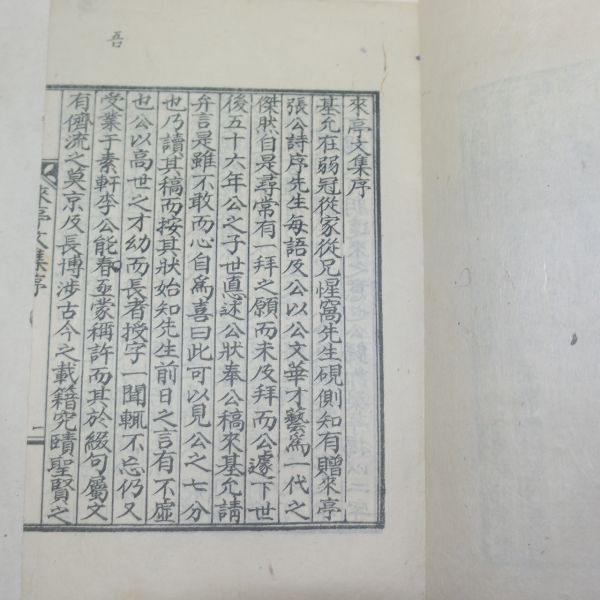 吾
來亭文集序
基允在弱冠從家從兄惺窩先生硯側知有贈來亭
張公詩序先生每語及公以公文華才藝爲一代之
傑然自是尋常有一拜之願而未及拜而公遽下世
後五十六年公之子世憲述公狀奉公稿來基允請
弁言是雖不敢而心自爲喜曰此可以見公之七分
也乃讀其稿而按其狀始知先生前日之言有不虛
也公以高世之才幼而長者授字一聞輒不忘仍又
受業于素軒李公能春亟蒙稱許而其於綴句屬文
有儕流之莫京及長博涉古今之載籍究賾聖賢之
來亭文集序
一